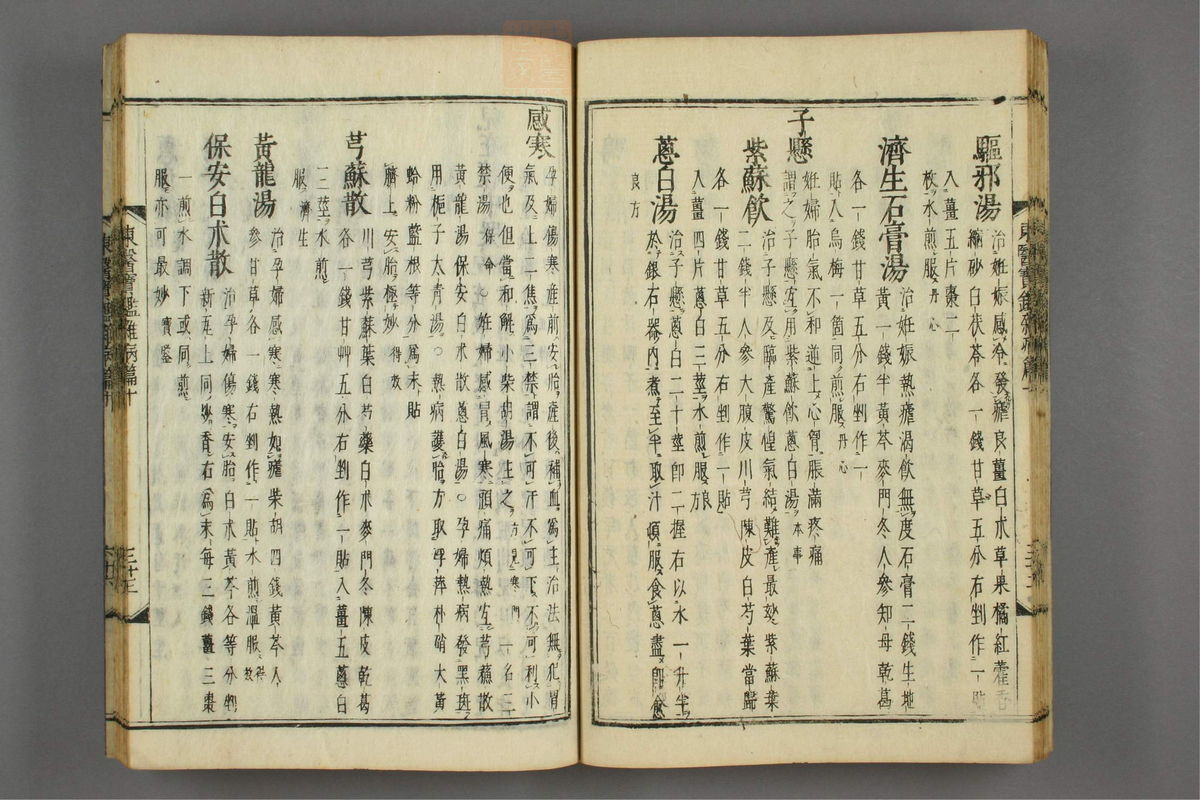 驅邪湯 治妊娠感冷發瘧良薑白朮草果橘紅藿香
縮砂白茯苓各一錢甘草五分右剉作一貼
入薑五片棗二
枚水煎服丹心
濟生石膏湯 治妊娠熱瘧渴飲無度石膏二錢生地
黃一錢半黃芩麥門冬人參知母乾葛
各一錢甘草五分右剉作一
貼入烏梅一箇同煎服丹心
子懸 妊婦胎氣不和逆上心胷脹滿疼痛
謂之子懸宜用紫蘇飮蔥白湯本事
紫蘇飮 治子懸及臨產驚惶氣結難產最玅紫蘇葉
二錢半人參大腹皮川芎陳皮白芍藥當歸
各一錢甘草五分右剉作一貼
入薑四片蔥白三莖水煎服良方
蔥白湯 治子懸蔥白二十莖卽二握右以水一升半
於銀石器內煮至半取汁頓服食蔥盡卽愈
良方
感寒 孕婦傷寒產前安胎產後補血爲主治法無犯胃
氣及上二焦爲三禁謂不可汗不可下不可利小
便也但當和解小柴胡湯主之方見寒門一名三
禁湯保命妊婦感冒風寒頭痛煩熱宜芎蘇散
黃龍湯保安白朮散蔥白湯○孕婦熱病發黑斑
用梔子大靑湯○熱病護胎方取浮萍朴硝大黃
蛤粉藍根等分爲末貼
臍上安胎極妙得效
芎蘇散 川芎紫蘇葉白芍藥白朮麥門冬陳皮乾葛
各一錢甘艸五分右剉作一貼入薑五蔥白
三莖水煎
服濟生
黃龍湯 治孕婦感寒寒熱如瘧柴胡四錢黃芩人
參甘草各一錢右剉作一貼水煎溫服得效
保安白朮散 治孕婦傷寒安胎白朮黃芩各等分剉
新瓦上同炒香右爲末每三錢薑三棗
一煎水調下或同煎
服亦可最妙寶鑑
東醫寶鑑雜病篇十
三十三